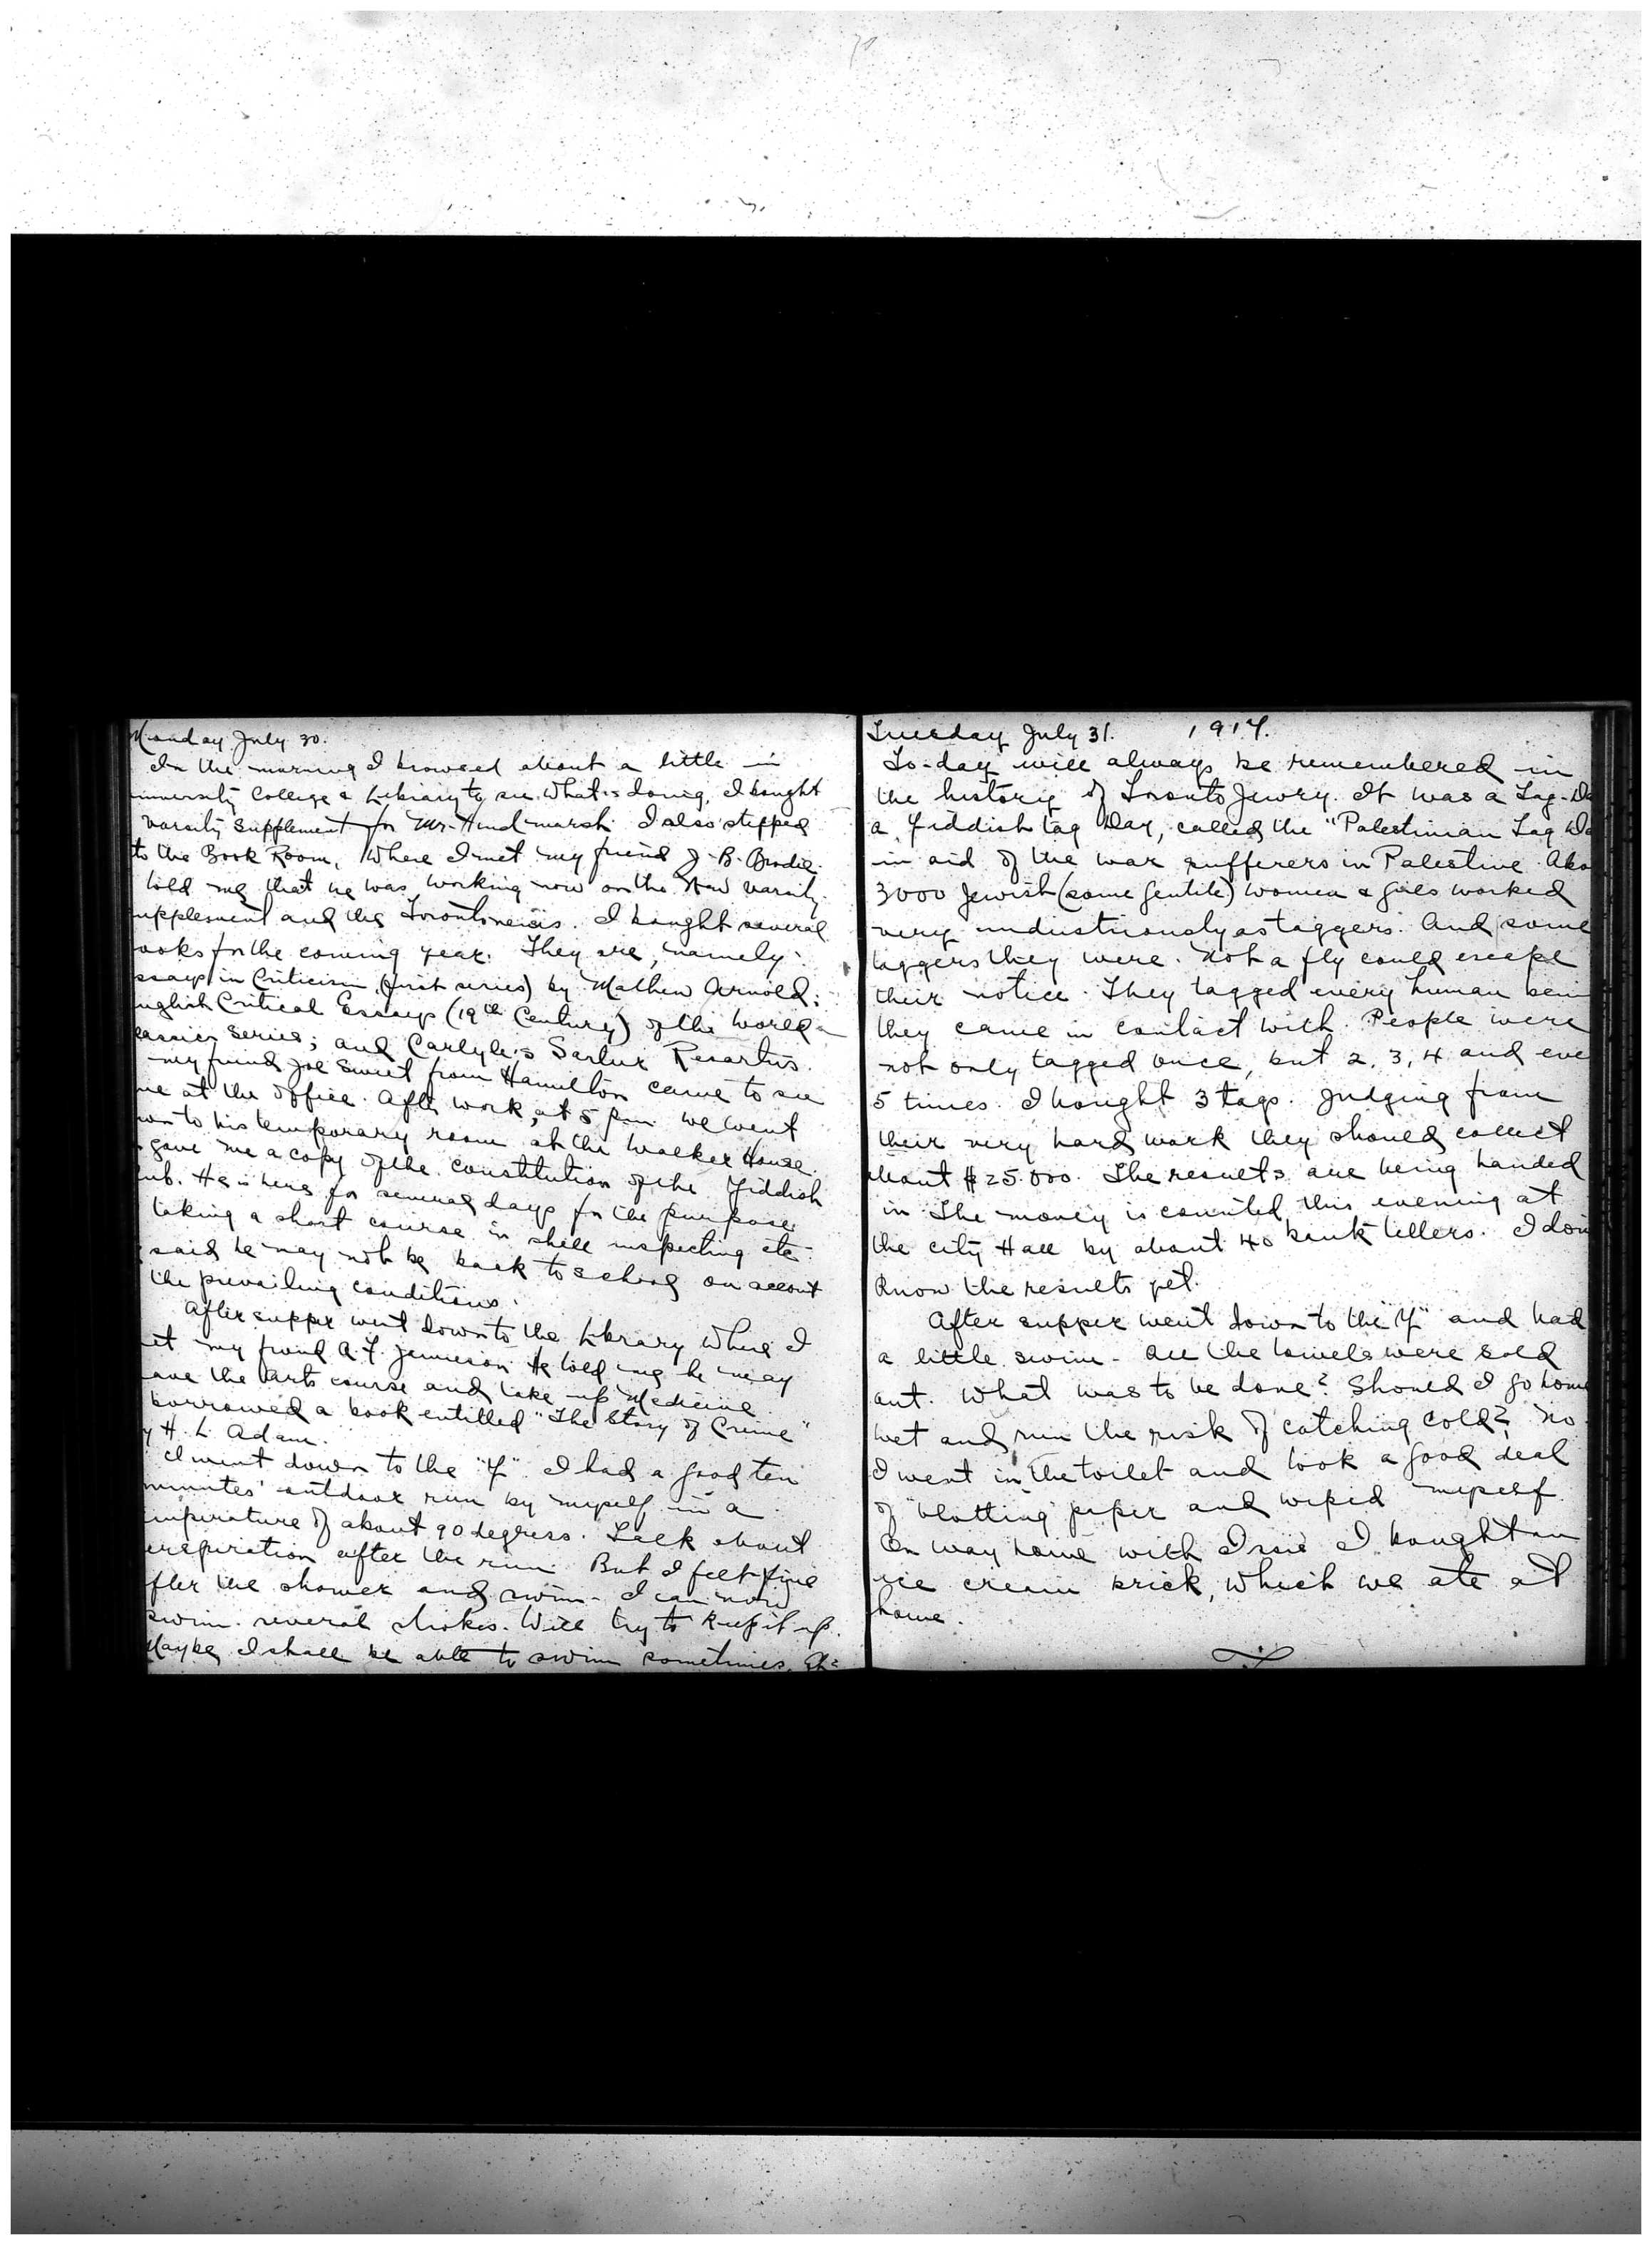 Monday July 30.
In the morning I browsed about a little in
university College & Library to see what is doing. I bought
Varsity Supplement for Mr. Hindmarsh. I also stepped
to the Book Room, where I met my friend J. B. Brodie.
told me that he was working now on the New Varsity
upplement and the Torontonensis. I bought several
ooks for the coming year. They are, namely:
ssays in Criticism (first series) by Mathew Arnold;
nglish Critical Essays (19th Century) of the World
lassics series; and Carlyle's Sartur Resartus.
my friend Joe Sweet from Hamilton came to see
me at the office. After work, at 5 p.m. we went
wn to his temporary room at the Walker House.
gave me a copy of the constitution of the Yiddish
lub. He is here for several days for the purpose
taking a short course in shell inspecting etc.
said he may not be back to school on account
the prevailing conditions.
After supper went down to the Library where I
et my friend A. F. Jamieson. He told me he may
ave the Arts course and take up Medicine.
borrowed a book entitled "The Story of Crime"
y H. L. Adam.
I went down to the "Y". I had a good ten
minutes' outdoor run by myself in a
emperature of about 90 degress. Talk about
erspiration after the run. But I felt fine
fter the shower and swim. I can now
swim several strokes. Will try to keep it up.
Maybe I shall be able to swim sometimes, eh?
Tuesday July 31. 1917.
To-day will always be remembered in
the history of Toronto Jewry. It was a Tag-Da
a Yiddish tag Day, called the "Palestinian Tag Da
in aid of the war sufferers in Palestine. Abo
3000 Jewish (some Gentile) women & girls worked
very industriously as taggers. And some
taggers they were. Not a fly could escape
their notice. They tagged every human bein
they came in contact with. People were
not only tagged once, but 2, 3, 4 and eve
5 times. I bought 3 tags. Judging from
their very hard work they should collect
about $25.000. The results are being handed
in. The money is counted this evening at
the city Hall by about 40 bank tellers. I don
know the results yet.
After supper went down to the "Y" and had
a little swim. All the towels were sold
out. What was to be done? Should I go home
wet and run the risk of catching cold? No.
I went in the toilet and took a good deal
of "blotting" paper and wiped myself.
On way home with Issie I bought an
ice cream brick, which we ate at
home.